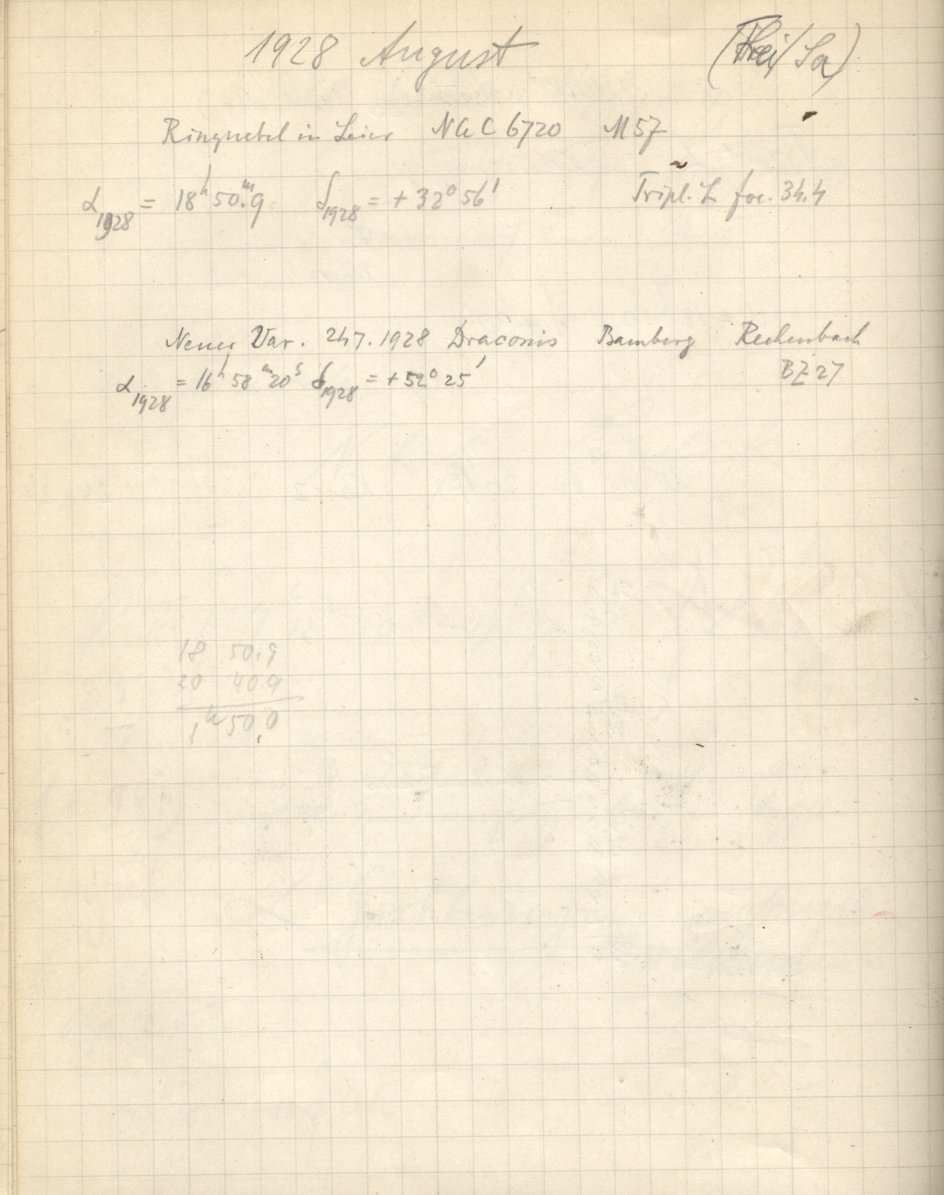 1928 August (Frei/Sa)
Ringnebel in Leier NGC 6720 M57
α1928 = 18h 50m.9 δ1928 = + 32° 56' Tripl. L foc. 34.4
Neuer Var. 247.1928 Draconis Bamberg
α1928 = 16h 58m 20s δ1928 = + 52° 25' BZ 27
18 50.9
20 40.9
1h 50.0